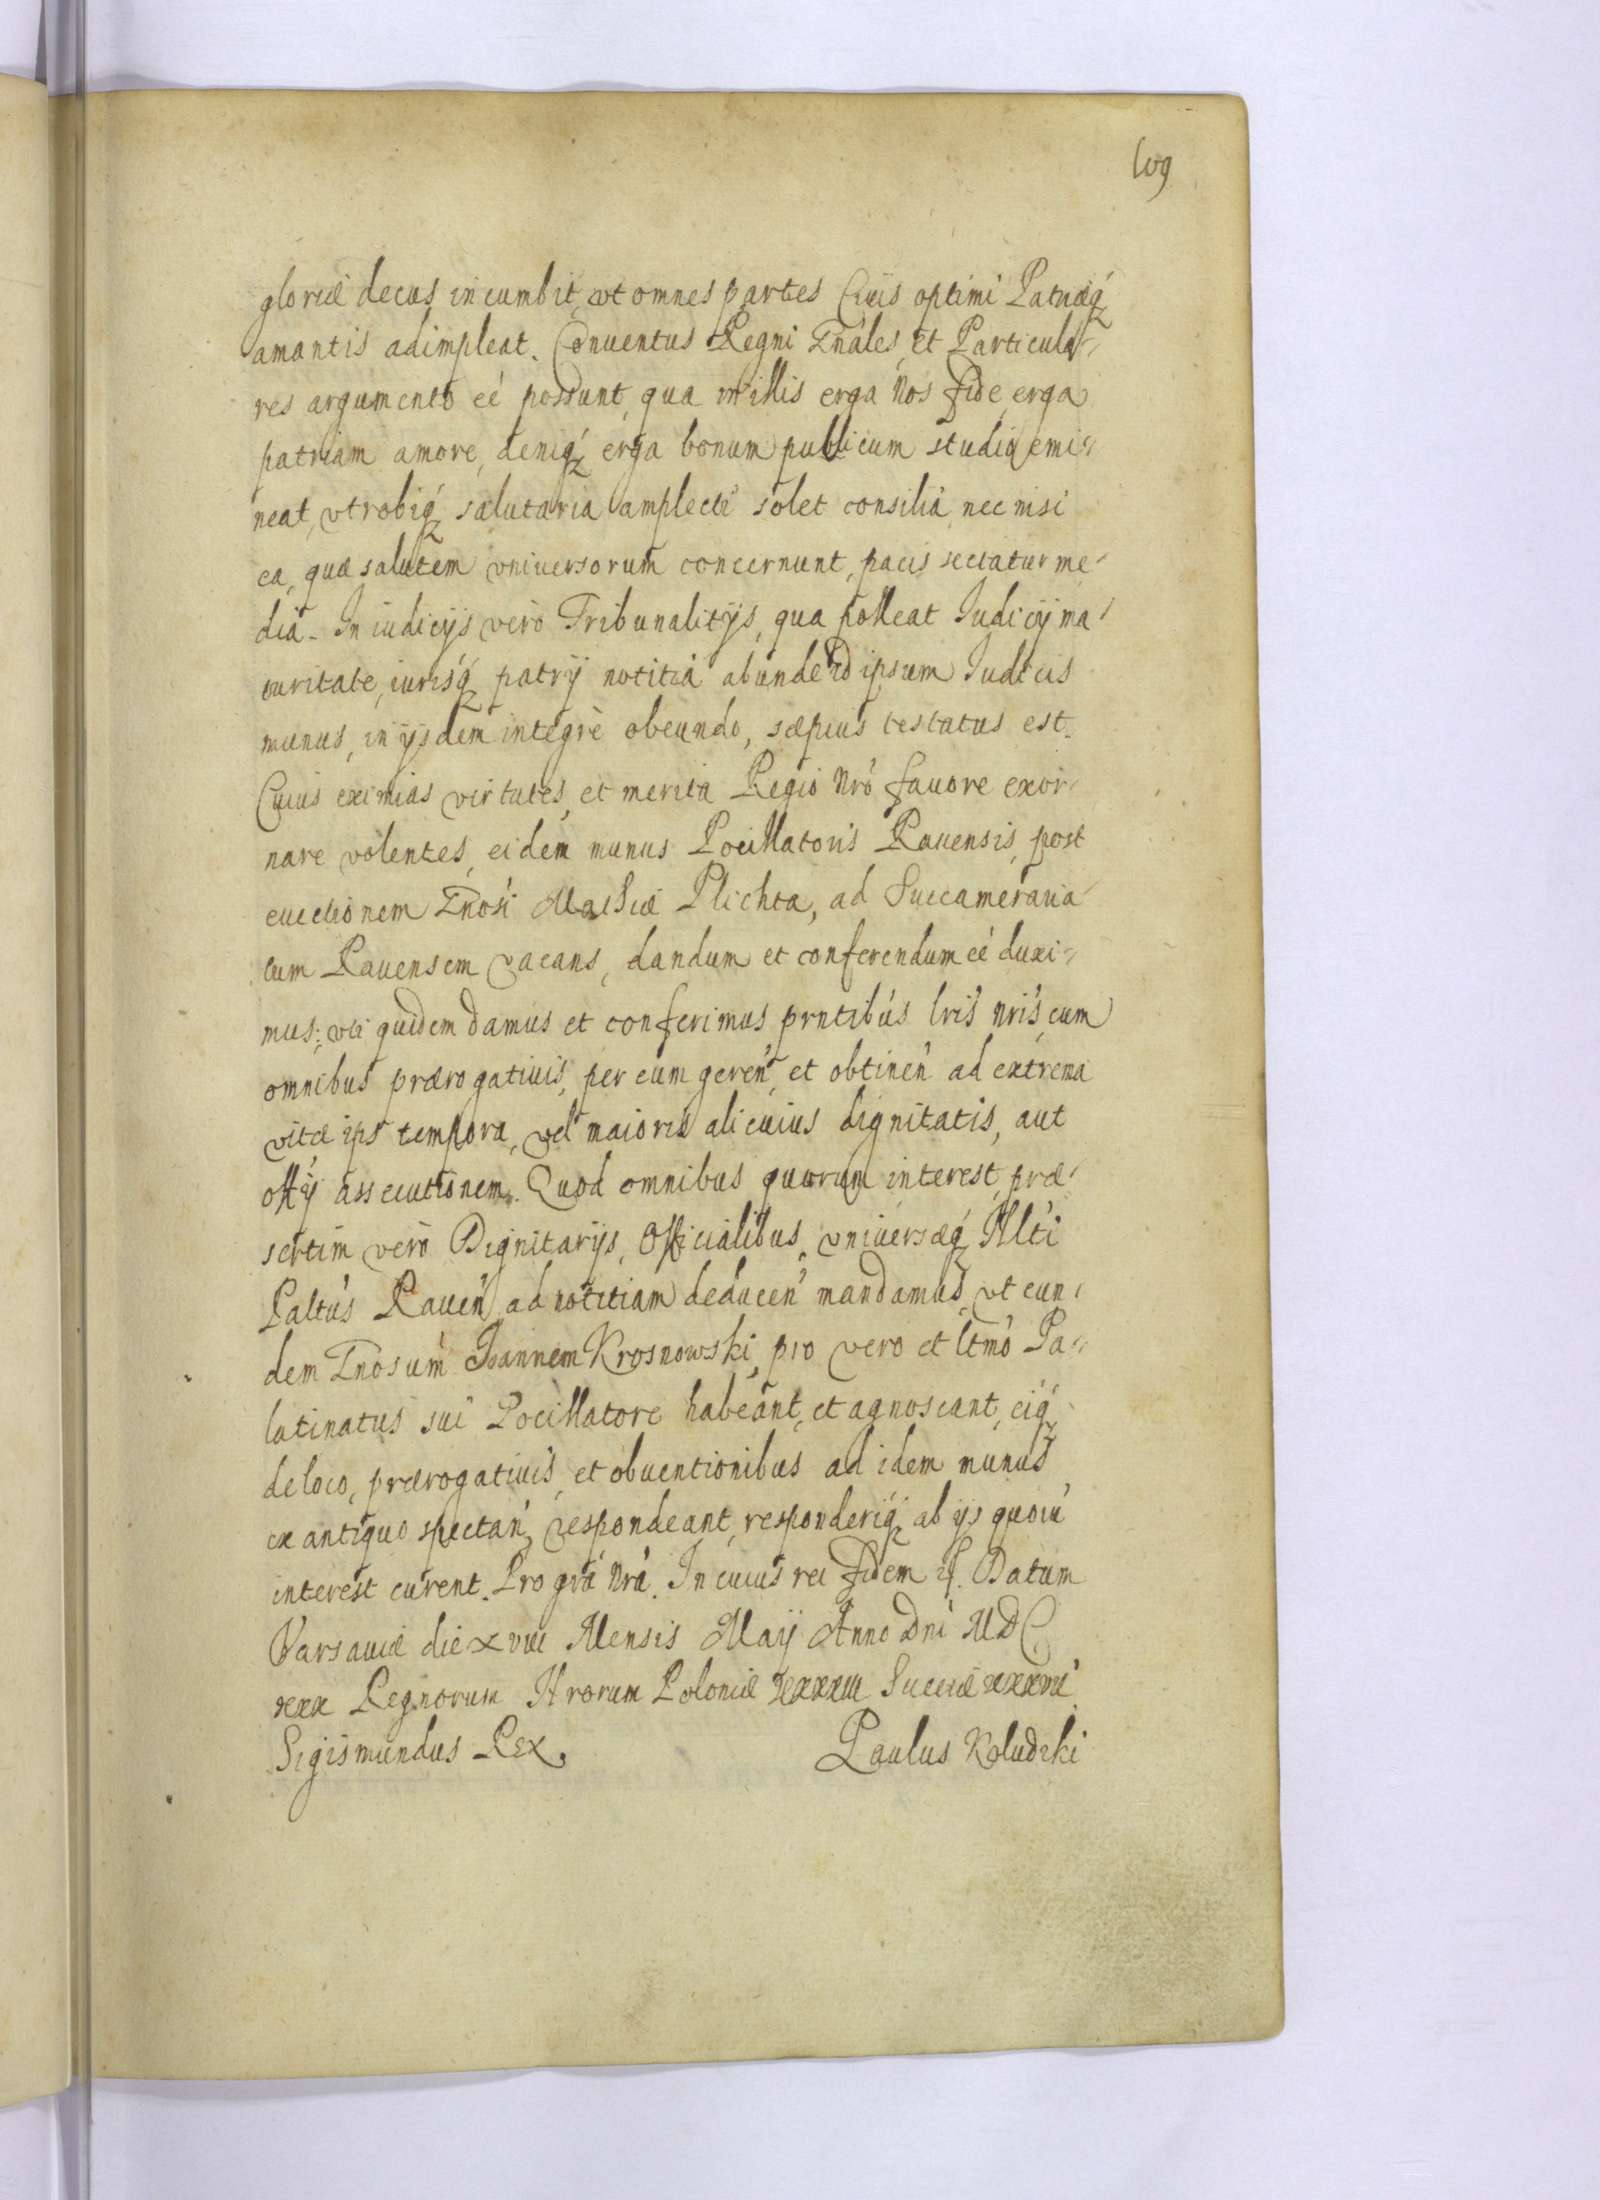 109
gloriæ decus incumbit, vt omnes partes Ciuis optimi Patriæq́
amantis adimpleat. Conuentus Regni Gnáles, et Particula-
res argumento eé possunt, qua in illis erga Nos fide, erga
patriam amore, deniq́ erga bonum publicum studio emi-
neat, vtrobiq́ salutaria amplecti solet consilia, nec nisi
ea, quæ salutem vniuersorum concernunt, pacis sectatur me-
dia. In iudicijs verò Tribunalitijs, qua polleat Iudicij ma-
turitate, iurisq́ patrij notitia abunde id ipsum Iudicis
munus, in ijsdem integrè obeundo, sæpius testatus est.
Cuius eximias virtutes, et merita Regio Nró fauore exor-
nare volentes, eidem munus Pocillatoris Rauensis, post
euectionem Gnósi Mathiæ Plichta, ad Succameraria-
tum Rauensem vacans, dandum et conferendum eé duxi-
mus; vti quidem damus et conferimus prntibús lris nris, cum
omnibus prærogatiuis, per eum geren, et obtinen ad extrema
vitæ ips tempora, vel maioris alicuius dignitatis, aut
offij assecutionem. Quod omnibus quorum interest, præ-
sertim verò Dignitarijs, Officialibus, vniuersæq́ Nlti
Paltús Rauen, ad notitiam deducen mandamus, vt eun-
dem Gnósum Joannem Krosnowski, pro vero et ltmó Pa-
latinatus sui Pocillatore habeant, et agnoscant, eiq́
de loco, prærogatiuis, et obuentionibus ad idem munus
ex antiquo spectan, respondeant, responderiq́ ab ijs quorú
interest curent. Pro grá Nrá. In cuius rei fidem etc. Datum
Varsauiæ die xviii Mensis Maij Anno Dni MDC
xxx Regnorum Nrorum Poloniæ xxxxiii Sueciæ xxxvii
Sigismundus Rex. Paulus Koludzki